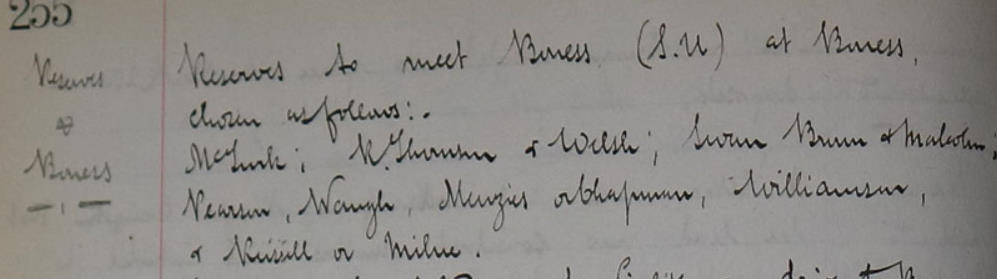 255
Reserves
v
Boness
Reserves to meet Boness (S.U) at Boness,
chosen as follows:-
McTurk; R. Thomson & Walsh; Swan Brown & Malcolm;
Pearson, Waugh, Menzies or Chapman, Williamson,
& Russell or Milne.